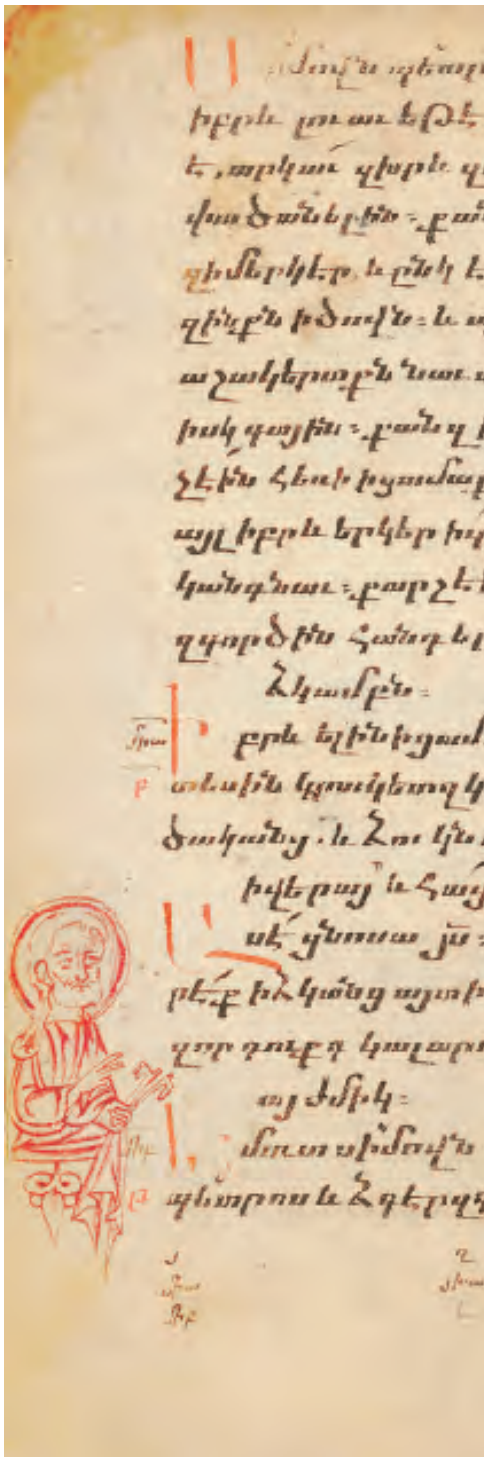 իմովն պետր
իբրև լուաւ եթէ
է, արկաւ զիւրև զ
ծանելին ։ քան
զի մերկ էր, և ընկ է
զինքն ի ծովն ։ և
աշակերտքն նաւ
իսկ գային ։ քանզ
չէին հեռի ի ցամաք
այլ իբրև երկեր իւ
կանգնաւ ։ քարշէ
զգործին հանդ եր
ձկամբքն ։
Իբրև ելին ի ցամ
տեսին կրակետղ կ
ծականց . և ձու կն
ի վերայ և հաց
Ասէ ցնոսա յս ։
րէք ի ձկանց այտի
զոր դուքդ կալար
այժմիկ ։
մուտ սիմովն
պետրոս և ձգէր զգ